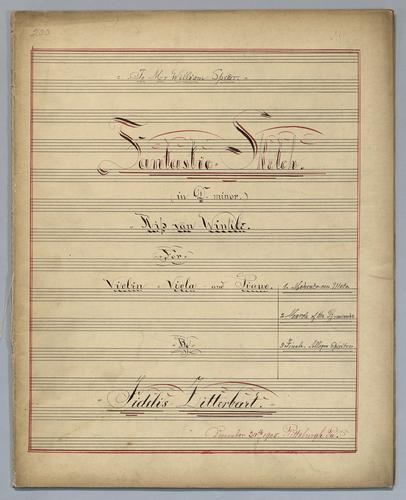 200
To Mr William Speer.
Fantastic Sketch.
(in D minor.)
Rip van Winkle.
For
Violin Viola and Piano.
1. Moderato con Moto
2 March of the
3 Finale. Allegro Spiritoso
By
Fidelis Zitterbart.
December 20th 1905. Pittsburgh Pa.